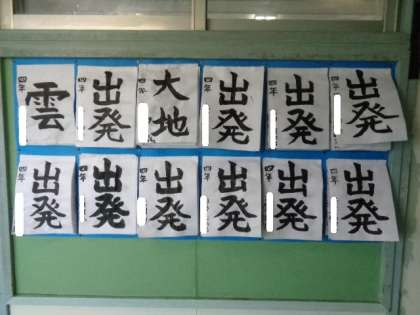 雲
四年
出発
四年
大地
四年
出発
四年
出発
四年
出発
四年
出発
四年
出発
四年
出発
四年
出発
四年
出発
四年
出発
四年